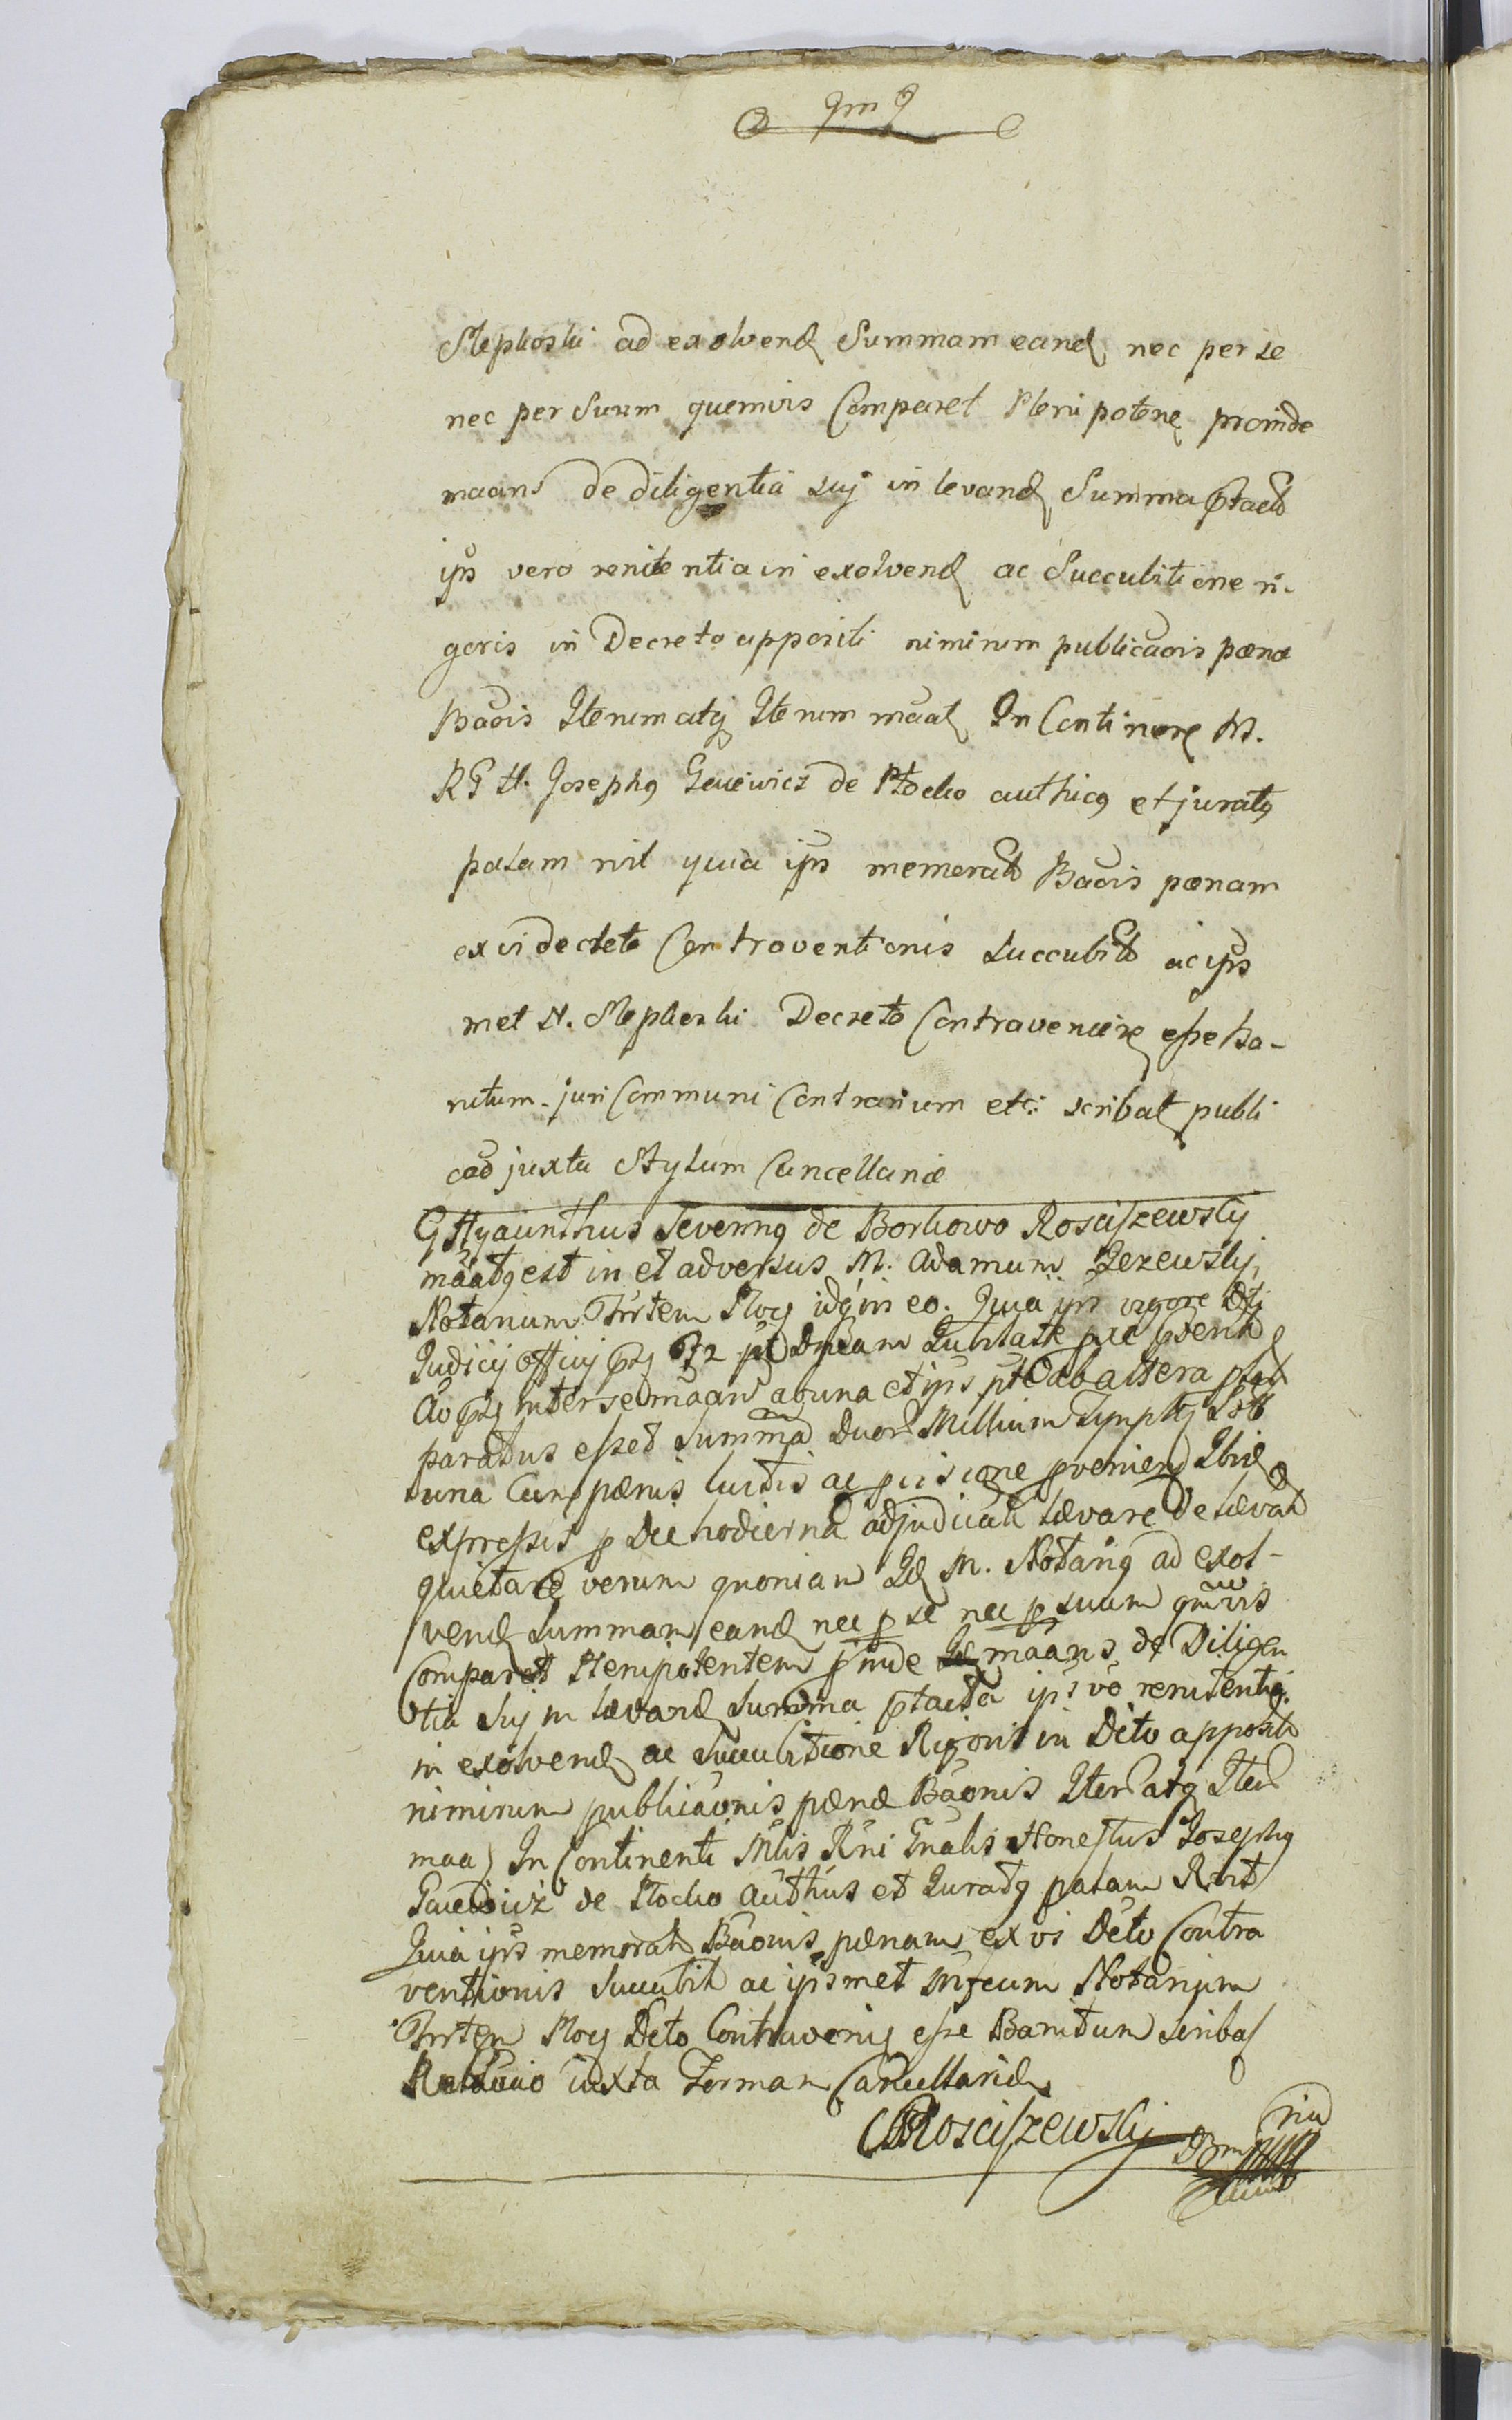 Slepkoski ad exolvend Summam eand nec per se
nec per Suum quemvis Comparet Plenipotene proinde
maans de diligentia suj in levand Summa pttacta
ips vero renitentia in exolvend ac Succubitione ri-
goris in Decreto appositi nimirum publicaois pœnæ
Baois Iterum atq Iterum maat In Continere M.
RG H. Josephq Gaiewicz de Plocko authicq et juratq
palam rvit quia ips memorato Baois pœnam
ex vi decreto Contraventionis succubito ac ips
met N. Slepkoski Decreto Contraveniere esse Ba-
nitum. juri Communi Contrarium etc: scribat publi
cao juxta Stylum Cancellariæ
G Hyacinthus Severinq de Borkowo Rosciszewskj
maatq est in et adversus M. Adamum Jezewskj,
Notarium Trrtem Plocj idq in eo. Quia ips vigore Dti
Judicij officij 72 Dnicam Jubilate
Ao inter se maans ab una et ips pte ab altera
paratus esset Summa Duor Millium Tymph
una Cum pœnis luitis ac pcisione pveniend Ibid
expressis p Die hodierna adjudicat lævare de lævat
quietare verum quoniam Id M. Notariq ad exol-
vend Summam eand nec p se nec p suum qmvis
Comparet Plenipotentem pinde maans de Diligen
tia suj in lævand Summa pttacta ips vo renitentia
in exolvend ac succubitione Rigoris in Dcto appositi
nimirum publicaonis pænæ Baonis Iter atq Iter
maa) In Continenti Mlis Rni Gnalis Honestus Josephq
Gaiewicz de Plocko Authius et Juratq palam Rvit
Quia ips memorat Baonis pænam ex vi Dcto Contra
ventionis succubit ac ipsmet Mfcum Notarium
Trrtem Plocj Dcto Contraveniq esse Banitum scribat
iuxta Formam Cancellariæ
Rosciszewskj